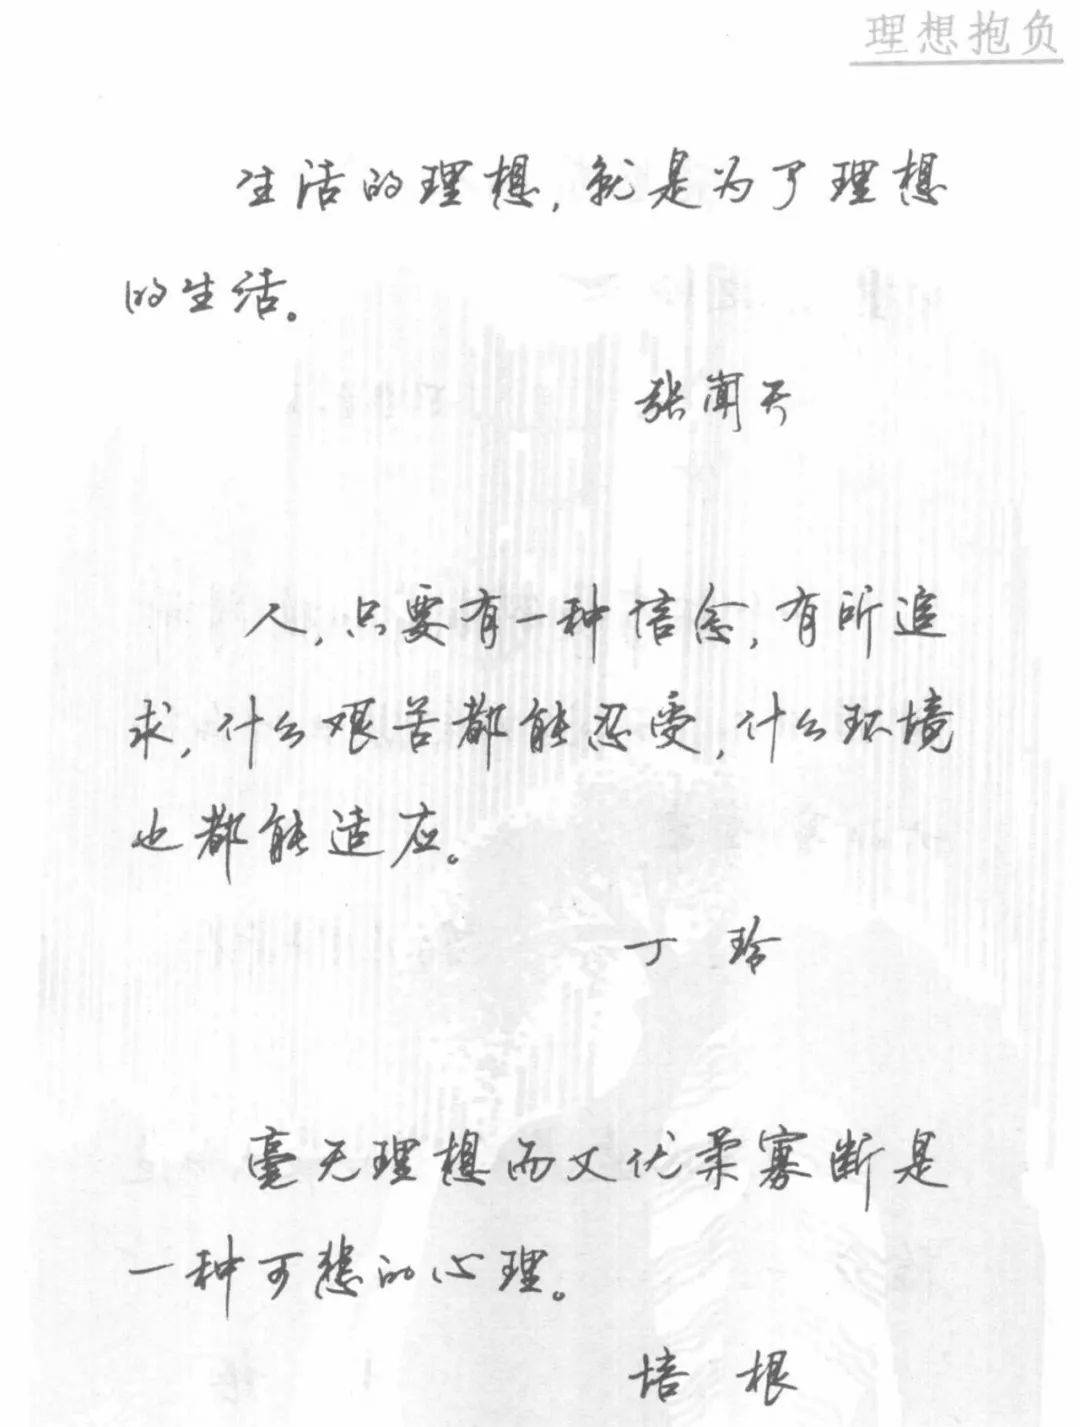 理想抱负
生活的理想,就是为了理想
的生活。
张闻天
人,只要有一种信念,有所追
求,什么艰苦都能忍受,什么环境
也都能适应。
丁玲
毫无理想而又优柔寡断是
一种可悲的心理。
培根